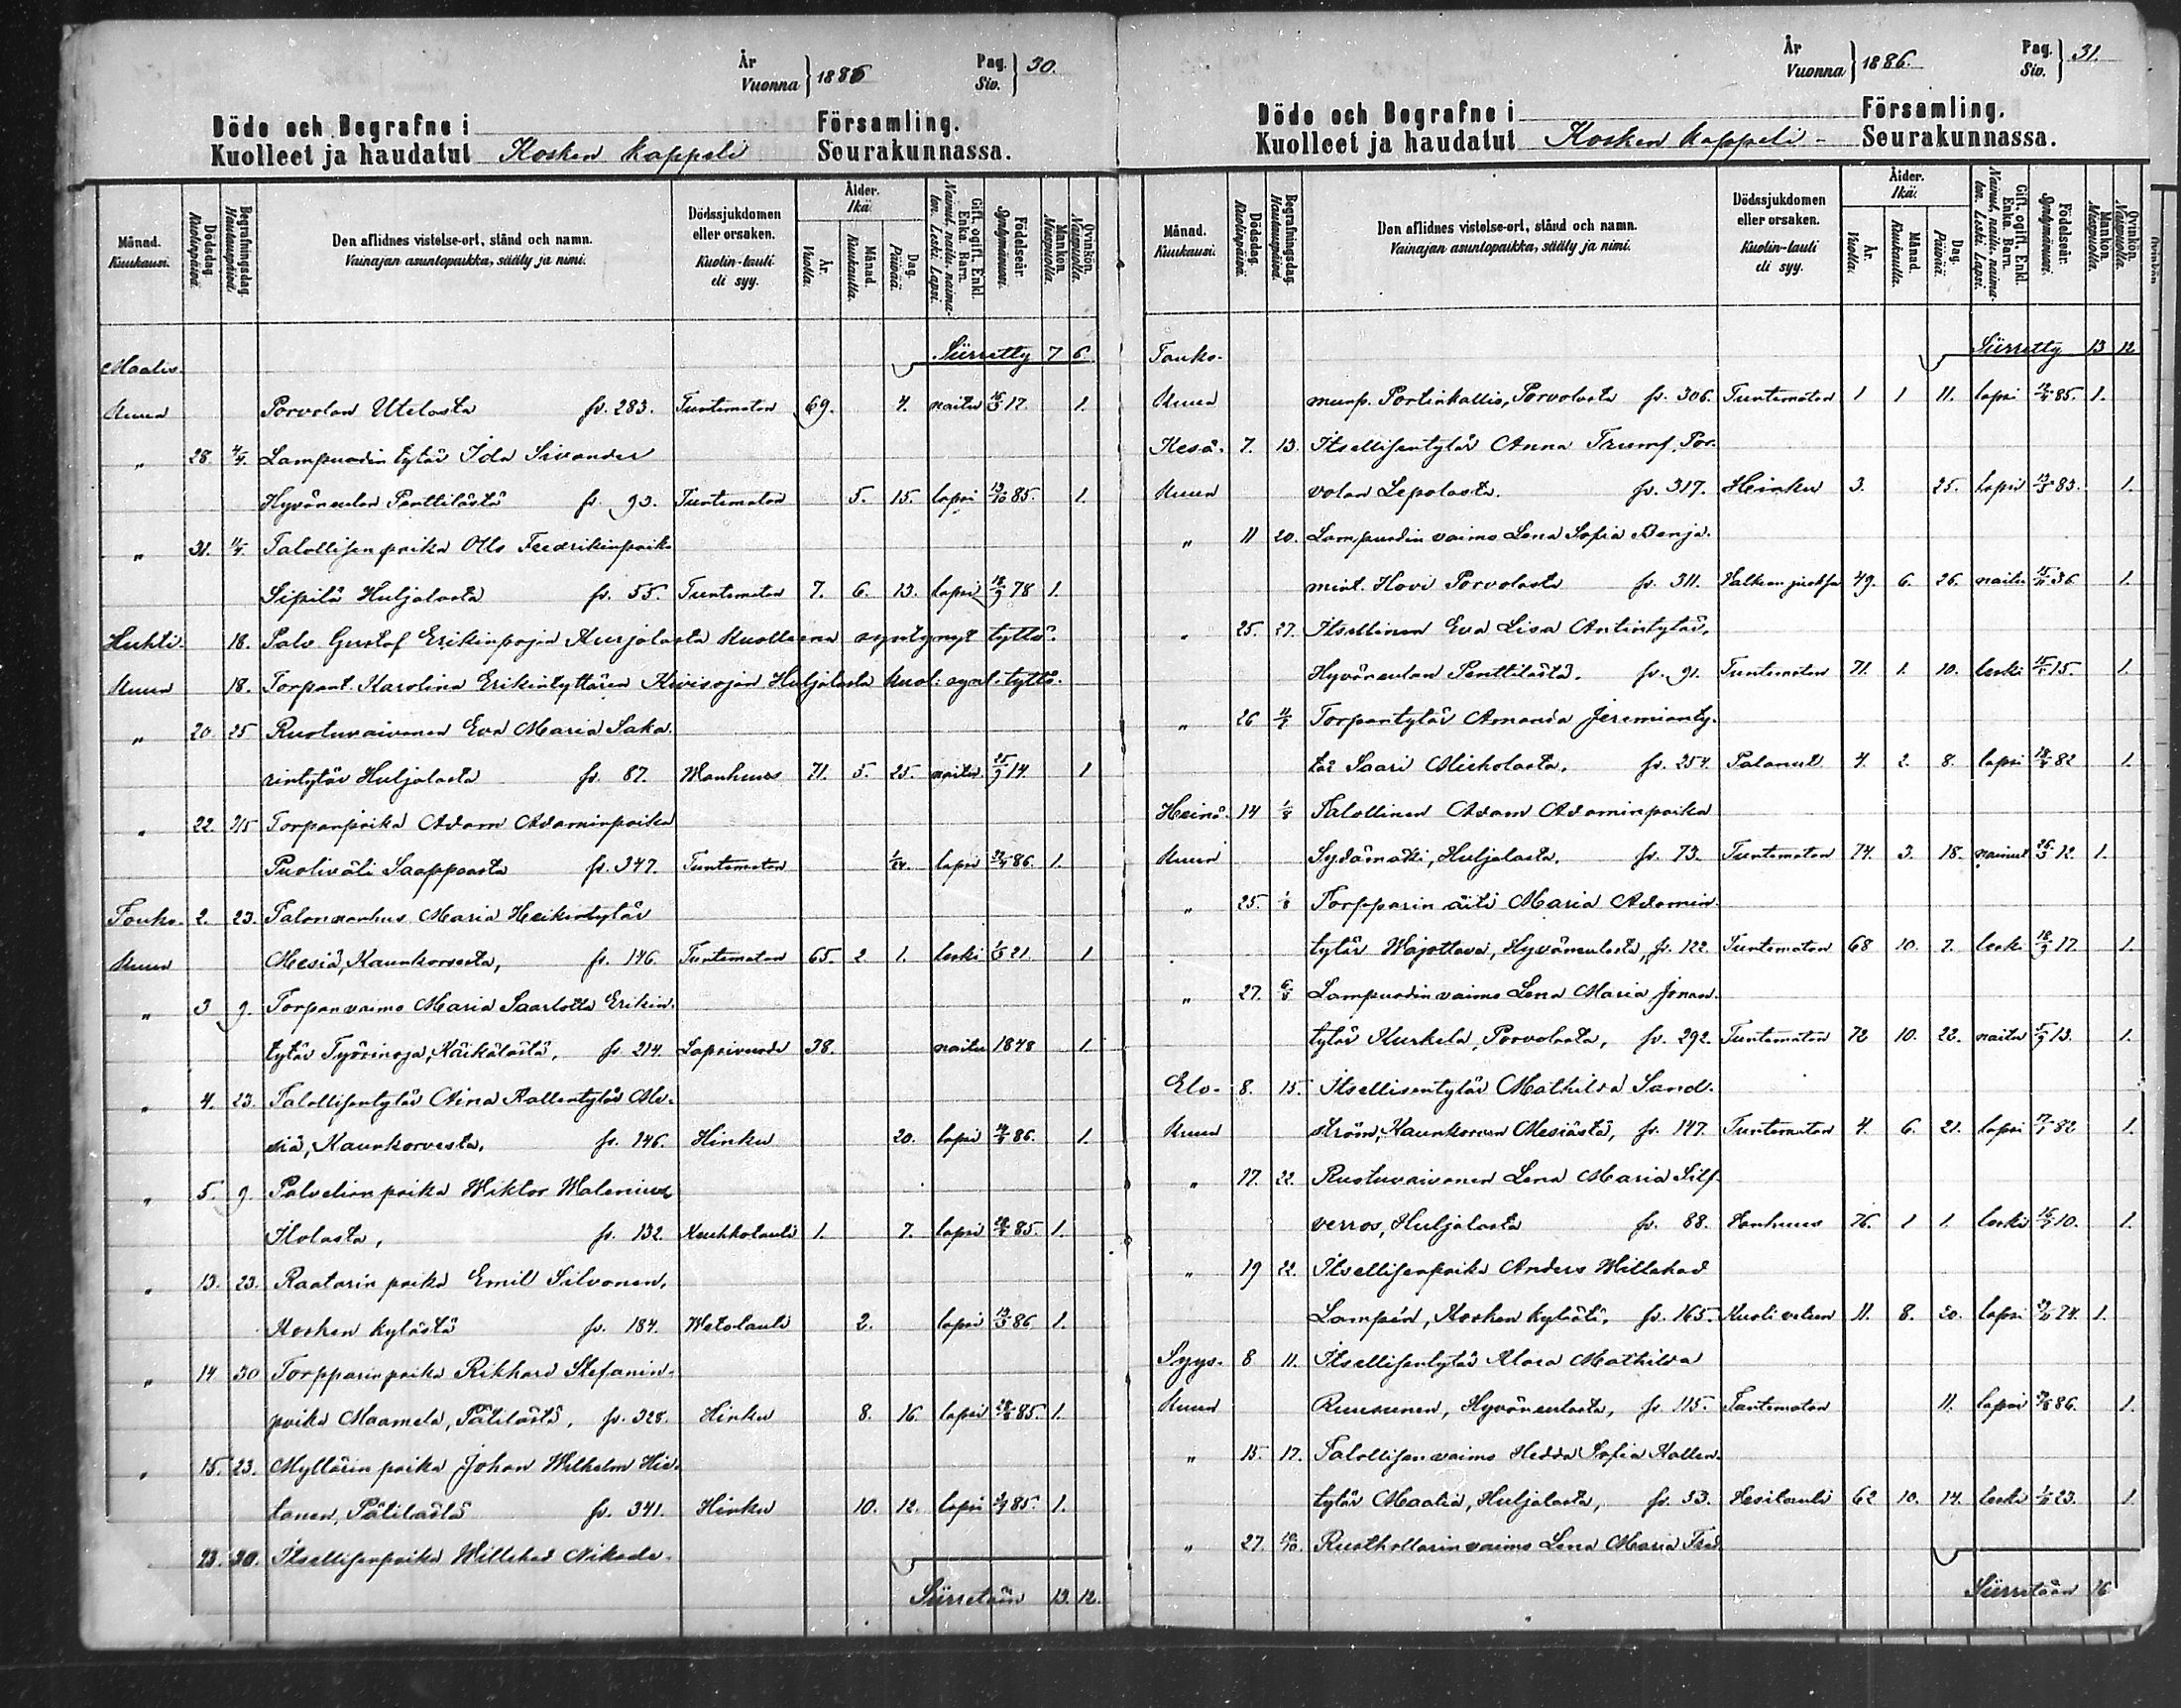 År
Vuonna } 1886
Pag.
Siv. } 30.
Döde och Begrafne i Församling.
Kuolleet ja haudatut Kosken kappeli Seurakunnassa.
Månad. Kuukausi.
Dödsdag. Kuolinpäivä.
Begrafningsdag. Hautauspäivä.
Den aflidnes vistelse-ort, stånd och namn.
Vainajan asuntopaikka, sääty ja nimi.
Dödssjukdomen eller orsaken.
Kuolin-tauti eli syy.
Ålder. Ikä.
År. Vuotta.
Månad. Kuukautta.
Dag. Päivää.
Gift, ogift, Enkl. Enka. Barn.
Nainut, naitu, naimaton. Leski. Lapsi.
Födelseår. Syntymävuosi.
Mankön. Miespuolta.
Qvinkön. Naispuolta.
Maalis. Siirretty 7 6
kuun Porvolan Utelasta fv. 283. Tuntematon 69. 4. naitu 17. 1.
" 28. 4/4. Lampuodin tytär Ida Sivander
Hyväneulan Penttilästä fv. 93. Tuntematon 5. 15. lapsi 13/10 85. 1.
" 31. 11/4. Talollisen poika Otto Fredrikinpoika
Sipilä Huljalasta fv. 55. Tuntematon 7. 6. 13. lapsi 18/9 78 1.
Huhti. 18. Palv. Gustaf Erikinpojan Aurjalasta kuolleena syntynyt tyttö.
kuun 18. Torpant. Karolina Erikintyttären Kivisojan Huljalasta kuol. synt. tyttö.
" 20. 25 Ruotuvaivanen Eva Maria Saka-
rintytär Huljalasta fv. 87. Wanhuus 71. 5. 25. naitu 25/9 14. 1
" 22. 2/5 Torpanpoika Adam Adaminpoika
Puoliväli Saappaasta fv. 347. Tuntematon 1/24. lapsi 22/4 86. 1.
Touko. 2. 23. Talonvanhus Maria Heikintytär
kuun Mesiä, Kaunkorvesta, fv. 146. Tuntematon 65. 2 1. leski 1/3 21 1
" 3 9. Torpanvaimo Maria Saarlotta Erikin-
tytär Työrinoja, Käikälästä, fv. 214. Lapsivuode 38. naitu 1848 1.
" 4. 23. Talollisentytär Aina Kallentytär Me-
siä, Kaunkorvesta, fv. 146. Hinku 20. lapsi 14/4 86. 1.
" 5. 9. Palvelian poika Wiktor Walenius
Ilolasta, fv. 132. Kuukkotauti 1. 7. lapsi 28/4 85. 1.
" 13. 23. Raatarin poika Emil Silvonen,
Kosken kylästä fv. 184. Wetotauti 2. lapsi 13/3 86 1.
" 14 30 Torpparin poika Rikhard Stefanin-
poika Maamela, Pätilästä, fv. 328. Hinku 8. 16. lapsi 28/8 85. 1.
" 15. 23. Myllärin poika Johan Wilhelm Hie-
tanen, Pätilästä fv. 341. Hinku 10. 12. lapsi 3/7 85. 1.
23. 30. Itsellisenpoika Willehad Nikode-
Siirretään 13. 12.
År
Vuonna } 1886.
Pag.
Siv. } 31.
Döde och Begrafne i Församling.
Kuolleet ja haudatut Kosken kappeli - Seurakunnassa.
Månad. Kuukausi.
Dödsdag. Kuolinpäivä.
Begrafningsdag. Hautauspäivä.
Den aflidnes vistelse-ort, stånd och namn.
Vainajan asuntopaikka, sääty ja nimi.
Dödssjukdomen eller orsaken.
Kuolin-tauti eli syy.
Ålder. Ikä.
År. Vuotta.
Månad. Kuukautta.
Dag. Päivää.
Gift, ogift, Enkl. Enka. Barn.
Nainut, naitu, naimaton. Leski. Lapsi.
Födelseår. Syntymävuosi.
Mankön. Miespuolta.
Qvinkön. Naispuolta.
Touko- Siirretty 13 12
kuun munp. Portinkallio, Porvolasta fv. 306. Tuntematon 1 1 11. lapsi 12/4 85. 1.
Kesä- 7. 13. Itsellisentytär Anna Trumf, Por-
kuun volan Lepolasta. fv. 317. Hinku 3. 25. lapsi 13/5 83. 1.
" 11 20. Lampuodin vaimo Lena Sofia Benja-
mint. Hovi Porvolasta fv. 311. Halkean juoksu 49. 6. 26. naitu 36 1.
" 25. 27. Itsellinen Eva Lisa Antintytär,
Hyväneulan Penttilästä. fv. 91. Tuntematon 71. 1. 10. leski 15/5 15. 1.
" 26 11/7 Torpantytär Amanda Jeremianty-
tär Saari Mickolasta. fv. 254. Palanut 4. 2. 8. lapsi 18/4 82 1.
Heinä- 14 1/8 Talollinen Adam Adaminpoika
kuun Sydämatti, Huljalasta. fv. 73. Tuntematon 74. 3. 18. nainut 26/3 12. 1.
" 25. 1/8 Torpparin äiti Maria Adamin-
tytär Wajottava, Hyväneulasta, fv. 122. Tuntematon 68 10. 7. leski 18/9 17. 1.
" 27. 6/8 Lampuodin vaimo Lena Maria Jonan-
tytär Kurkela, Porvolasta, fv. 292. Tuntematon 72 10. 22. naitu 5/9 13. 1.
Elo- 8. 15. Itsellisentytär Mathilda Sand-
kuun ström, Kaunkorven Mesiästä, fv. 147. Tuntematon 4. 6. 21. lapsi 17/1 82 1.
" 17. 22. Ruotuvaivanen Lena Maria Silf-
verros, Huljalasta fv. 88. Wanhuus 76. 1 1. leski 16/7 10. 1.
" 19 22. Itsellisenpoika Anders Willehad
Lampén, Kosken kylästä. fv. 165. Kuoli veteen 11. 8. 20. lapsi 74. 1.
Syys- 8 11. Itsellisentytär Klara Mathilda
kuun Ruusunen, Hyväneulasta, fv. 115. Tuntematon 11. lapsi 86. 1.
" 15. 17. Talollisen vaimo Hedda Sofia Kallen-
tytär Maatia, Huljalasta, fv. 53. Hesitauti 62 10. 14. leski 23. 1.
" 27. 10/10. Rusthollarin vaimo Lena Maria Fred-
Siirretään 16